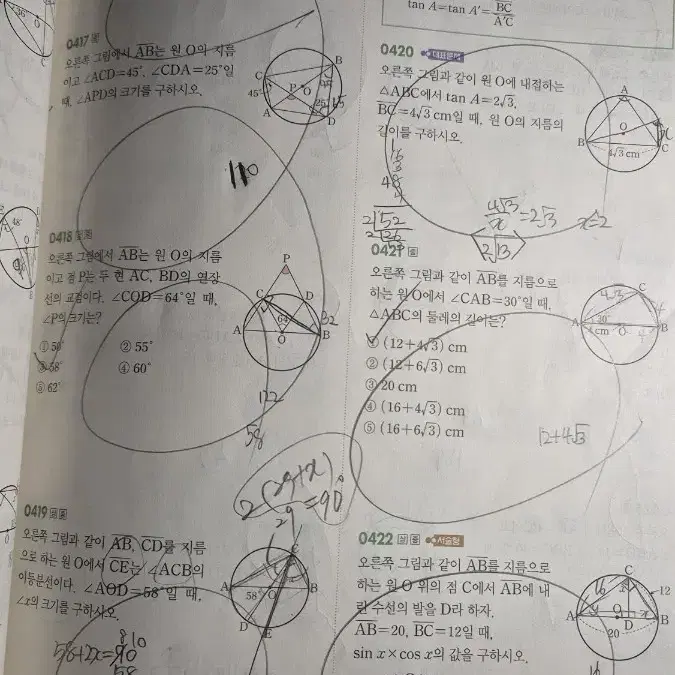 0417
오른쪽 그림에서 AB는 원 O의 지름
이고 ∠ACD=45°, ∠CDA=25°일
때, ∠APD의 크기를 구하시오.
C
B
P
O
45°
25°
A
D
110
0418
오른쪽 그림에서 AB는 원 O의 지름
이고 점 P는 두 현 AC, BD의 연장
선의 교점이다. ∠COD=64°일 때,
∠P의 크기는?
① 50°
② 55°
③ 58°
④ 60°
⑤ 62°
P
C
D
64°
A
O
B
32
122
58
2(29+x)
=90°
29
0419
오른쪽 그림과 같이 AB, CD를 지름
으로 하는 원 O에서 CE는 ∠ACB의
이등분선이다. ∠AOD=58°일 때,
∠x의 크기를 구하시오.
C
A
58°
O
B
D
E
58+2x=90
58
tan A=tan A'=BC/A'C
0420 대표문제
오른쪽 그림과 같이 원 O에 내접하는
△ABC에서 tan A=2√3,
BC=4√3 cm일 때, 원 O의 지름의
길이를 구하시오.
A
O
B
C
4√3 cm
16
3
48
4
2 52
2 26
4√3/x=2√3
x=2
2√13
0421
오른쪽 그림과 같이 AB를 지름으로
하는 원 O에서 ∠CAB=30°일 때,
△ABC의 둘레의 길이는?
① (12+4√3) cm
② (12+6√3) cm
③ 20 cm
④ (16+4√3) cm
⑤ (16+6√3) cm
C
4√3
4
A
30°
4 cm
O
B
12+4√3
0422 서술형
오른쪽 그림과 같이 AB를 지름으로
하는 원 O 위의 점 C에서 AB에 내
린 수선의 발을 D라 하자.
AB=20, BC=12일 때,
sin x×cos x의 값을 구하시오.
C
16
x
12
A
O
D
B
20
16